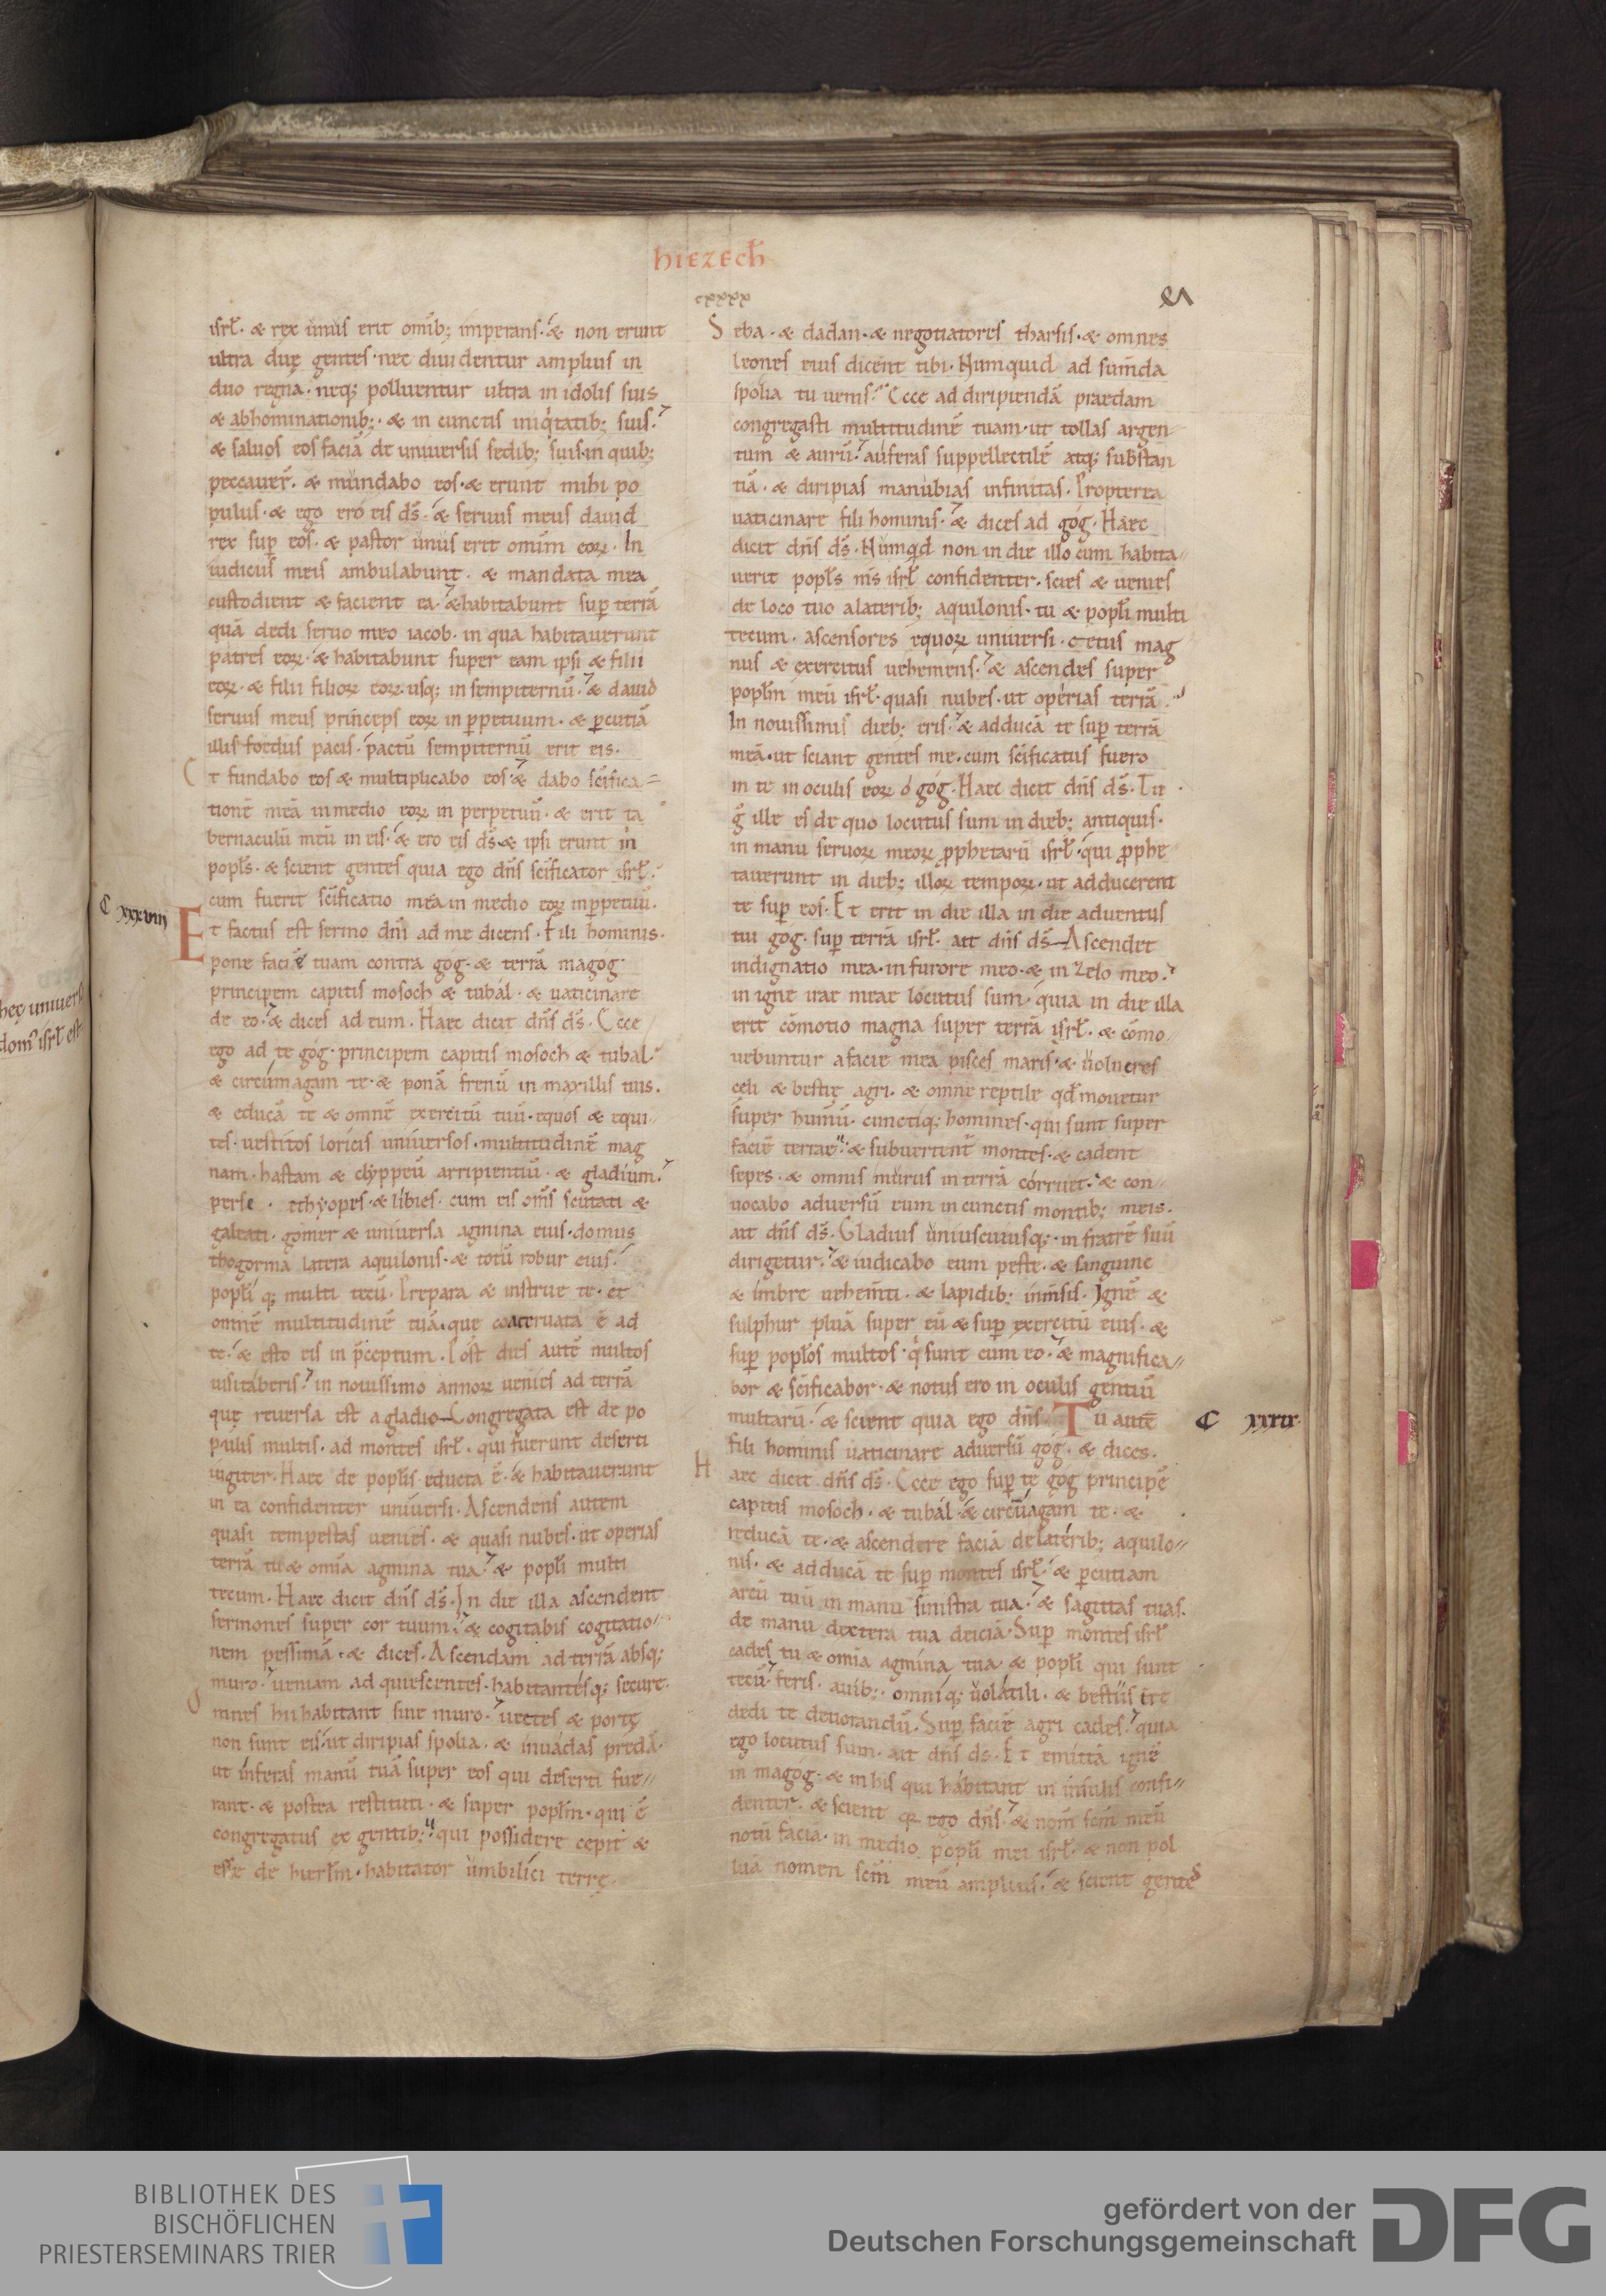 hiezech̄
cxxxx
isrł. & rex unus erit omīb; imperans. & non erunt
ultra duę gentes. nec diuidentur amplius in
duo regna. neq; polluentur ultra in idolis suis
& abhominationib;. & in cunctis iniq̇tatib; suis.
& saluos eos faciā de uniuersis sedib; suis. in quib;
peccauer̄. & mundabo eos. & erunt mihi po
pulus. & ego ero eis ds̄. & seruus meus dauid
rex sup̄ eos. & pastor unus erit omiūm eoꝝ. In
iudiciis meis ambulabunt. & mandata mea
custodient & facient ea. & habitabunt sup̄ terrā
quā dedi seruo meo iacob. in qua habitauerunt
patres eoꝝ. & habitabunt super eam ipsi & filii
eoꝝ. & filii filioꝝ eoꝝ. usq; in sempiternū. & dauid
seruus meus princeps eoꝝ in ꝑpetuum. & ꝑcutiā
illis foedus pacis. pactū sempiternū erit eis.
Et fundabo eos & multiplicabo eos. & dabo sc̄ifica
tionē meā in medio eoꝝ in perpetuū. & erit ta
bernaculū meū in eis. & ero eis ds̄. & ipsi erunt m̄
popls̄. & scient gentes quia ego dn̄s sc̄ificator isrł.
cum fuerit sc̄ificatio mea in medio eoꝝ in ꝑpetuū.
C xxxviii
Et factus est sermo dn̄i ad me dicens. Fili hominis.
pone faciē tuam contra gog. & terrā magog.
principem capitis mosoch & tubal. & uaticinare
de eo. & dices ad eum. Haec dicit dn̄s ds̄. Ecce
ego ad te gog. principem capitis mosoch & tubal.
& circūmagam te. & ponā frenū in maxillis tuis.
& educā te & omnē exercitū tuū. equos & equi
tes. uestitos loricis uniuersos. multitudinē mag
nam. hastam & clyppeū arripientiū. & gladium.
perse. ethyopes. & libies. cum eis om̄s scutati &
galeati. gomer & uniuersa agmina eius. domus
thogorma latera aquilonis. & totū robur eius.
popłi q; multi tecū. Prepara & instrue te. et
omnē multitudinē tuā. que coaceruata ē ad
te. & esto eis in p̄ceptum. Post dies autē multos
uisitaberis. in nouissimo annoꝝ uenies ad terrā
quę reuersa est a gladio. Congregata est de po
pulis multis. ad montes isrł. qui fuerunt deserti
iugiter. Haec de popłis educta ē. & habitauerunt
in ea confidenter uniuersi. Ascendens autem
quasi tempestas uenies. & quasi nubes. ut operias
terrā tu & omīa agmina tua. & popłi multi
tecum. Haec dicit dn̄s ds̄. In die illa ascendent
sermones super cor tuum. & cogitabis cogitatio
nem pessimā. & dices. Ascendam ad terrā absq;
muro. ueniam ad quiescentes. habitantesq; secure.
Omnes hii habitant sine muro. uectes & portę
non sunt eis. ut diripias spolia. & inuadas predā.
ut inferas manū tuā super eos qui deserti fue
rant. & postea restituti. & super popłm. qui ē
congregatus ex gentib;. qui possidere cepit &
esse de hierłm. habitator umbilici terrę.
Seba. & dadan. & negotiatores tharsis. & omnes
leones eius dicent tibi. Numquid ad sum̄da
spolia tu uenis. Ecce ad diripiendā praedam
congregasti multitudinē tuam. ut tollas argen
tum & aurū. auferas suppellectilē atq; substan
tiā. & diripias manubias infinitas. Propterea
uaticinare fili hominis. & dices ad gog. Haec
dicit dn̄s ds̄. Numq̇d non in die illo cum habita
uerit popłs m̄s isrł confidenter. scies & uenies
de loco tuo a laterib; aquilonis. tu & popłi multi
tecum. ascensores equoꝝ uniuersi. cetus mag
nus & exercitus uehemens. & ascendes super
popłm meū isrł. quasi nubes. ut operias terrā.
In nouissimis dieb; eris. & adducā te sup̄ terrā
meā. ut sciant gentes me. cum sc̄ificatus fuero
in te in oculis eoꝝ o gog. Haec dicit dn̄s ds̄. Tu
g̊ ille es de quo locutus sum in dieb; antiquis.
in manu seruoꝝ meoꝝ ꝓphetarū isrł. qui ꝓphe
tauerunt in dieb; illoꝝ tempoꝝ. ut adducerem
te sup̄ eos. Et erit in die illa in die aduentus
tui gog. sup̄ terrā isrł. ait dn̄s ds̄. Ascendet
indignatio mea. in furore meo. & in zelo meo.
in igne irae meae locutus sum. quia in die illa
erit cōmotio magna super terrā isrł. & cōmo
uebuntur a facie mea pisces maris. & uolucres
celi & bestię agri. & omne reptile qd̄ mouetur
super humū. cunctiq; homines. qui sunt super
faciē terrae. & subuertent̄ montes. & cadent
sepes. & omnis murus in terrā corruet. & con
uocabo aduersū eum in cunctis montib; meis.
ait dn̄s ds̄. Gladius uniuscuiusq;. in fratrē suū
dirigetur. & iudicabo eum peste. & sanguine
& imbre uehem̄ti. & lapidib; inm̄sis. Ignē &
sulphur pluā super eū & sup̄ exercitū eius. &
sup̄ popłos multos. q̇ sunt cum eo. & magnifica
bor & sc̄ificabor. & notus ero in oculis gentiū
multarū. & scient quia ego dn̄s. Tu autē
C xxxix
fili hominis uaticinare aduersū gog. & dices.
Haec dicit dn̄s ds̄. Ecce ego sup̄ te gog principē
capitis mosoch. & tubal. & circūagam te. &
reducā te. & ascendere faciā de laterib; aquilo
nis. & adducā te sup̄ montes isrł. & ꝑcutiam
arcū tuū in manu sinistra tua. & sagittas tuas.
de manu dextera tua deiciā. Sup̄ montes isrł
cades tu & omīa agmina tua. & popłi qui sunt
tecū. feris. auib;. omniq; uolatili. & bestiis tre
dedi te deuorandū. Sup̄ faciē agri cades. quia
ego locutus sum. ait dn̄s ds̄. Et emittā ignē
in magog. & in his qui habitant in insulis confi
denter. & scient qꝛ ego dn̄s. & nom̄ sc̄m meū
notū faciā. in medio popłi mei isrł. & non pol
luā nomen sc̄m meū amplius. & scient gentes
heç uniuers
dom' isrł est
BIBLIOTHEK DES
BISCHÖFLICHEN
PRIESTERSEMINARS TRIER
gefördert von der
Deutschen Forschungsgemeinschaft
DFG